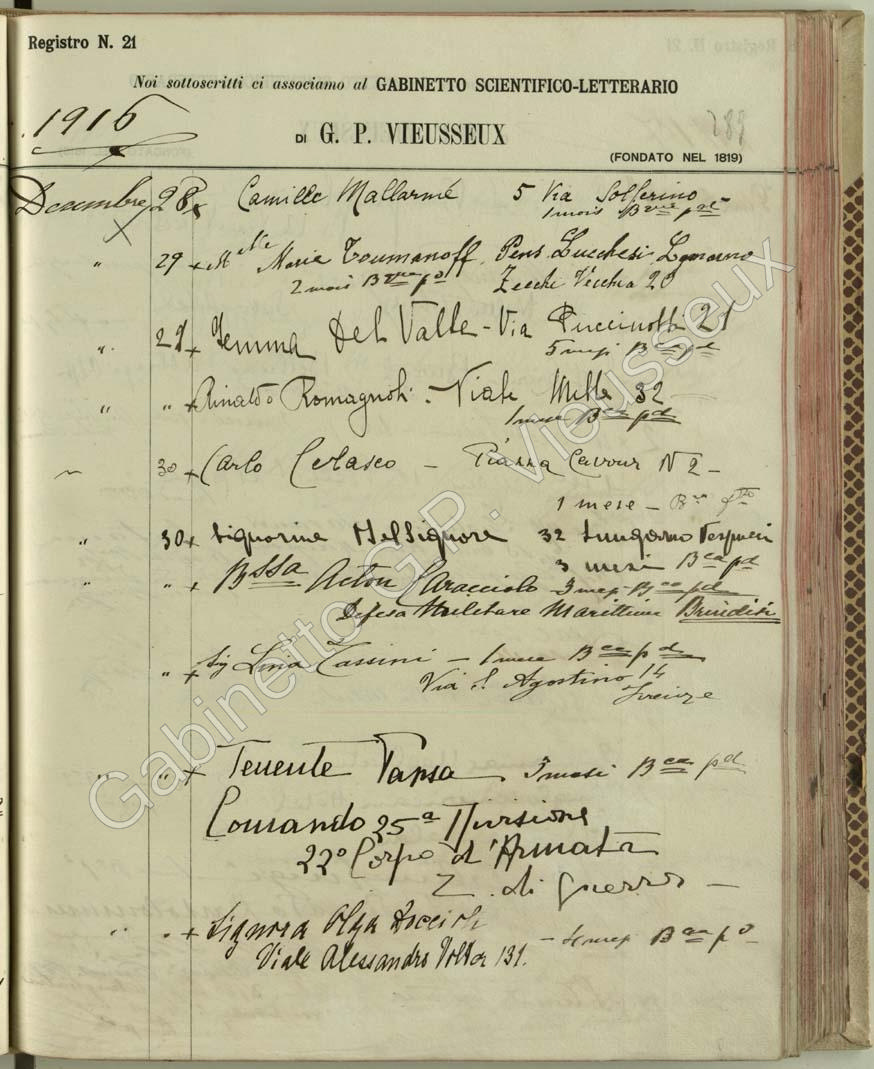 Registro N. 21
Noi sottoscritti ci associamo al GABINETTO SCIENTIFICO-LETTERARIO
1916
DI G. P. VIEUSSEUX
289
(FONDATO NEL 1819)
Decembre 28 x Camille Mallarmé 5 Via Solferino
1 mois
" 29 x Mlle Marie Toumanoff, Pens. Lucchesi Lgnarno
2 mois Zecche Vecchia 20
" 29 x Gemma Del Valle - Via Puccinotti 21
5 mesi Bca pd
" " x Rinaldo Romagnoli - Viale Mille 32
1 mese Bca pd
30 x Carlo Cerasco - Piazza Cavour N 2 -
1 mese -
" 30 x Signorina Del Signore 32 Lungarno Vespucci
3 mesi Bca pd
" " x Bssa Acton Caracciolo 3 mesi Bca pd
Difesa Militare Marittima Brindisi
" x Sig Lina Cassini - 1 mese Bca pd
Via S. Agostino 14
Firenze
" " x Tenente 3 mesi Bca pd
Comando 25a Divisione
22o Corpo d'Armata
Z. di guerra -
" " x Signora Olga
Viale Alessandro Volta 131. Bca pd
Gabinetto G.P. Vieusseux